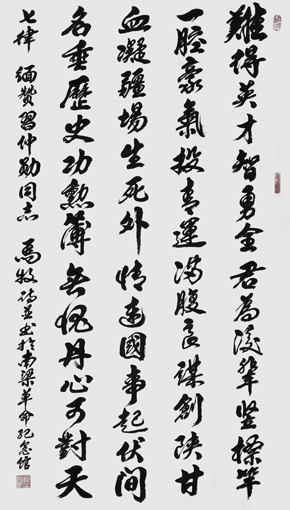 難得英才智勇全君為後輩竪標竿
一腔豪氣投青運滿腹良謀創陝甘
血凝疆場生死外情連國事起伏間
名垂歷史功勲簿無愧丹心可對天
七律 緬贊習仲勛同志 馬牧詩並書於南梁革命紀念館